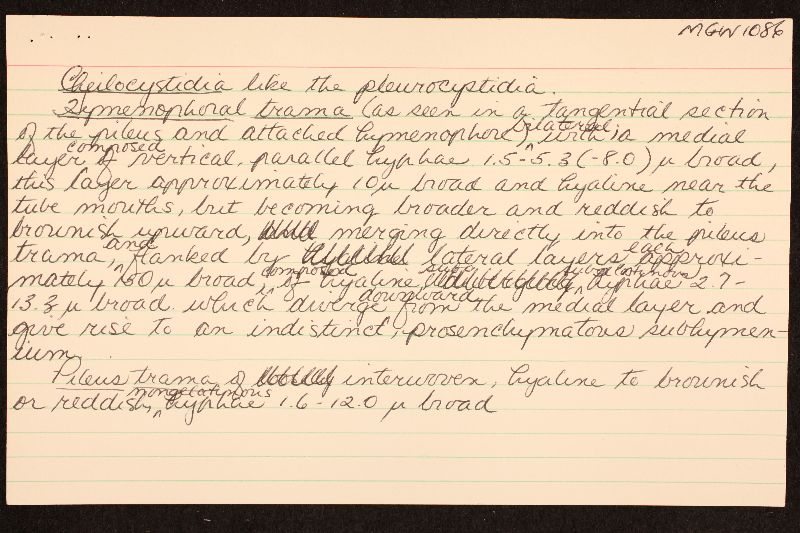 MGW 1086
Cheilocystidia like the pleurocystidia.
Hymenophoral trama (as seen in a tangential section
of the pileus and attached hymenophore) bilateral, with a medial
layer composed of vertical, parallel hyphae 1.5-5.3 (-8.0) µ broad,
this layer approximately 10µ broad and hyaline near the
tube mouths, but becoming broader and reddish to
brownish upward, merging directly into the pileus
trama, and flanked by lateral layers each approxi-
mately 50 µ broad, composed of hyaline hyphae 2.7-
13.3 µ broad which diverge downward from the medial layer and
give rise to an indistinct, prosenchymatous subhymen-
ium.
Pileus trama of interwoven, hyaline to brownish
or reddish, nongelatinous hyphae 1.6-12.0 µ broad